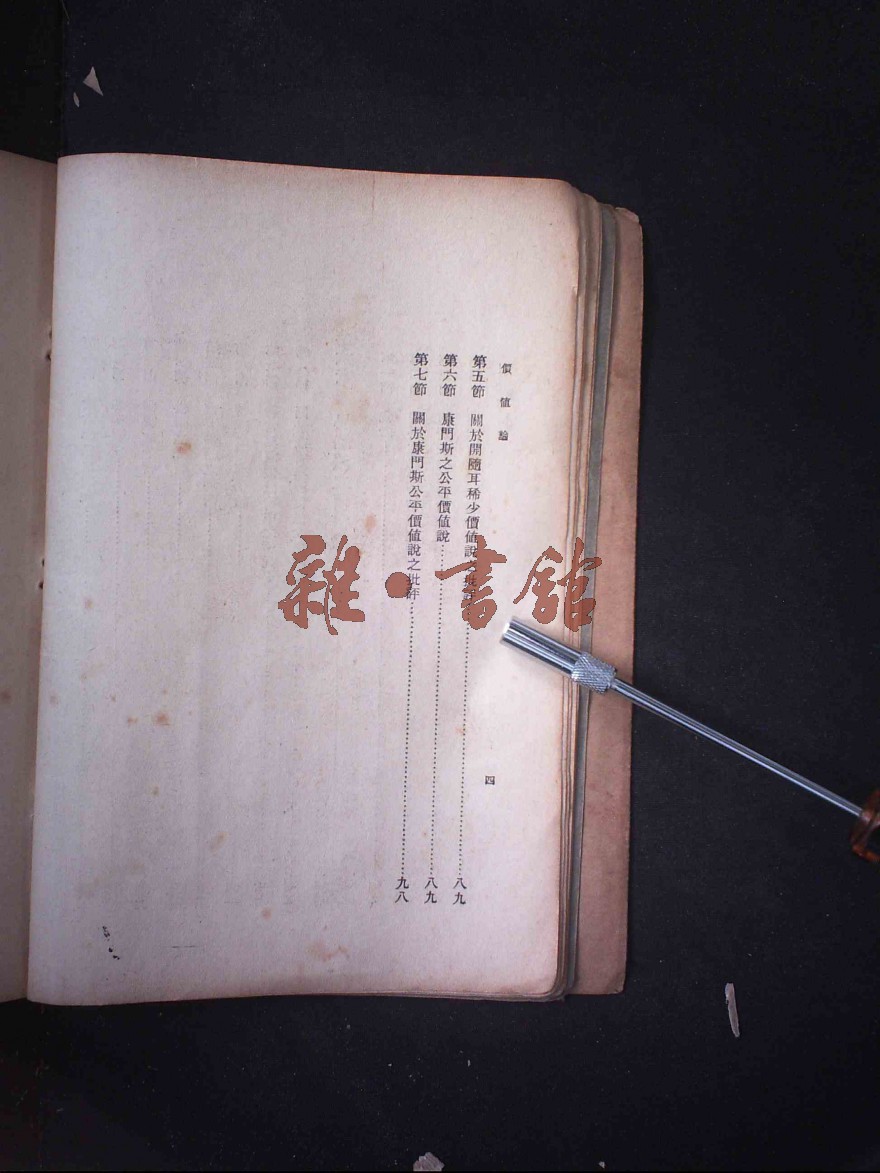 價值論
四
第五節 關於開隨耳稀少價值說之批評……八九
第六節 康門斯之公平價值說……八九
第七節 關於康門斯公平價值說之批評……九八
雜·書館